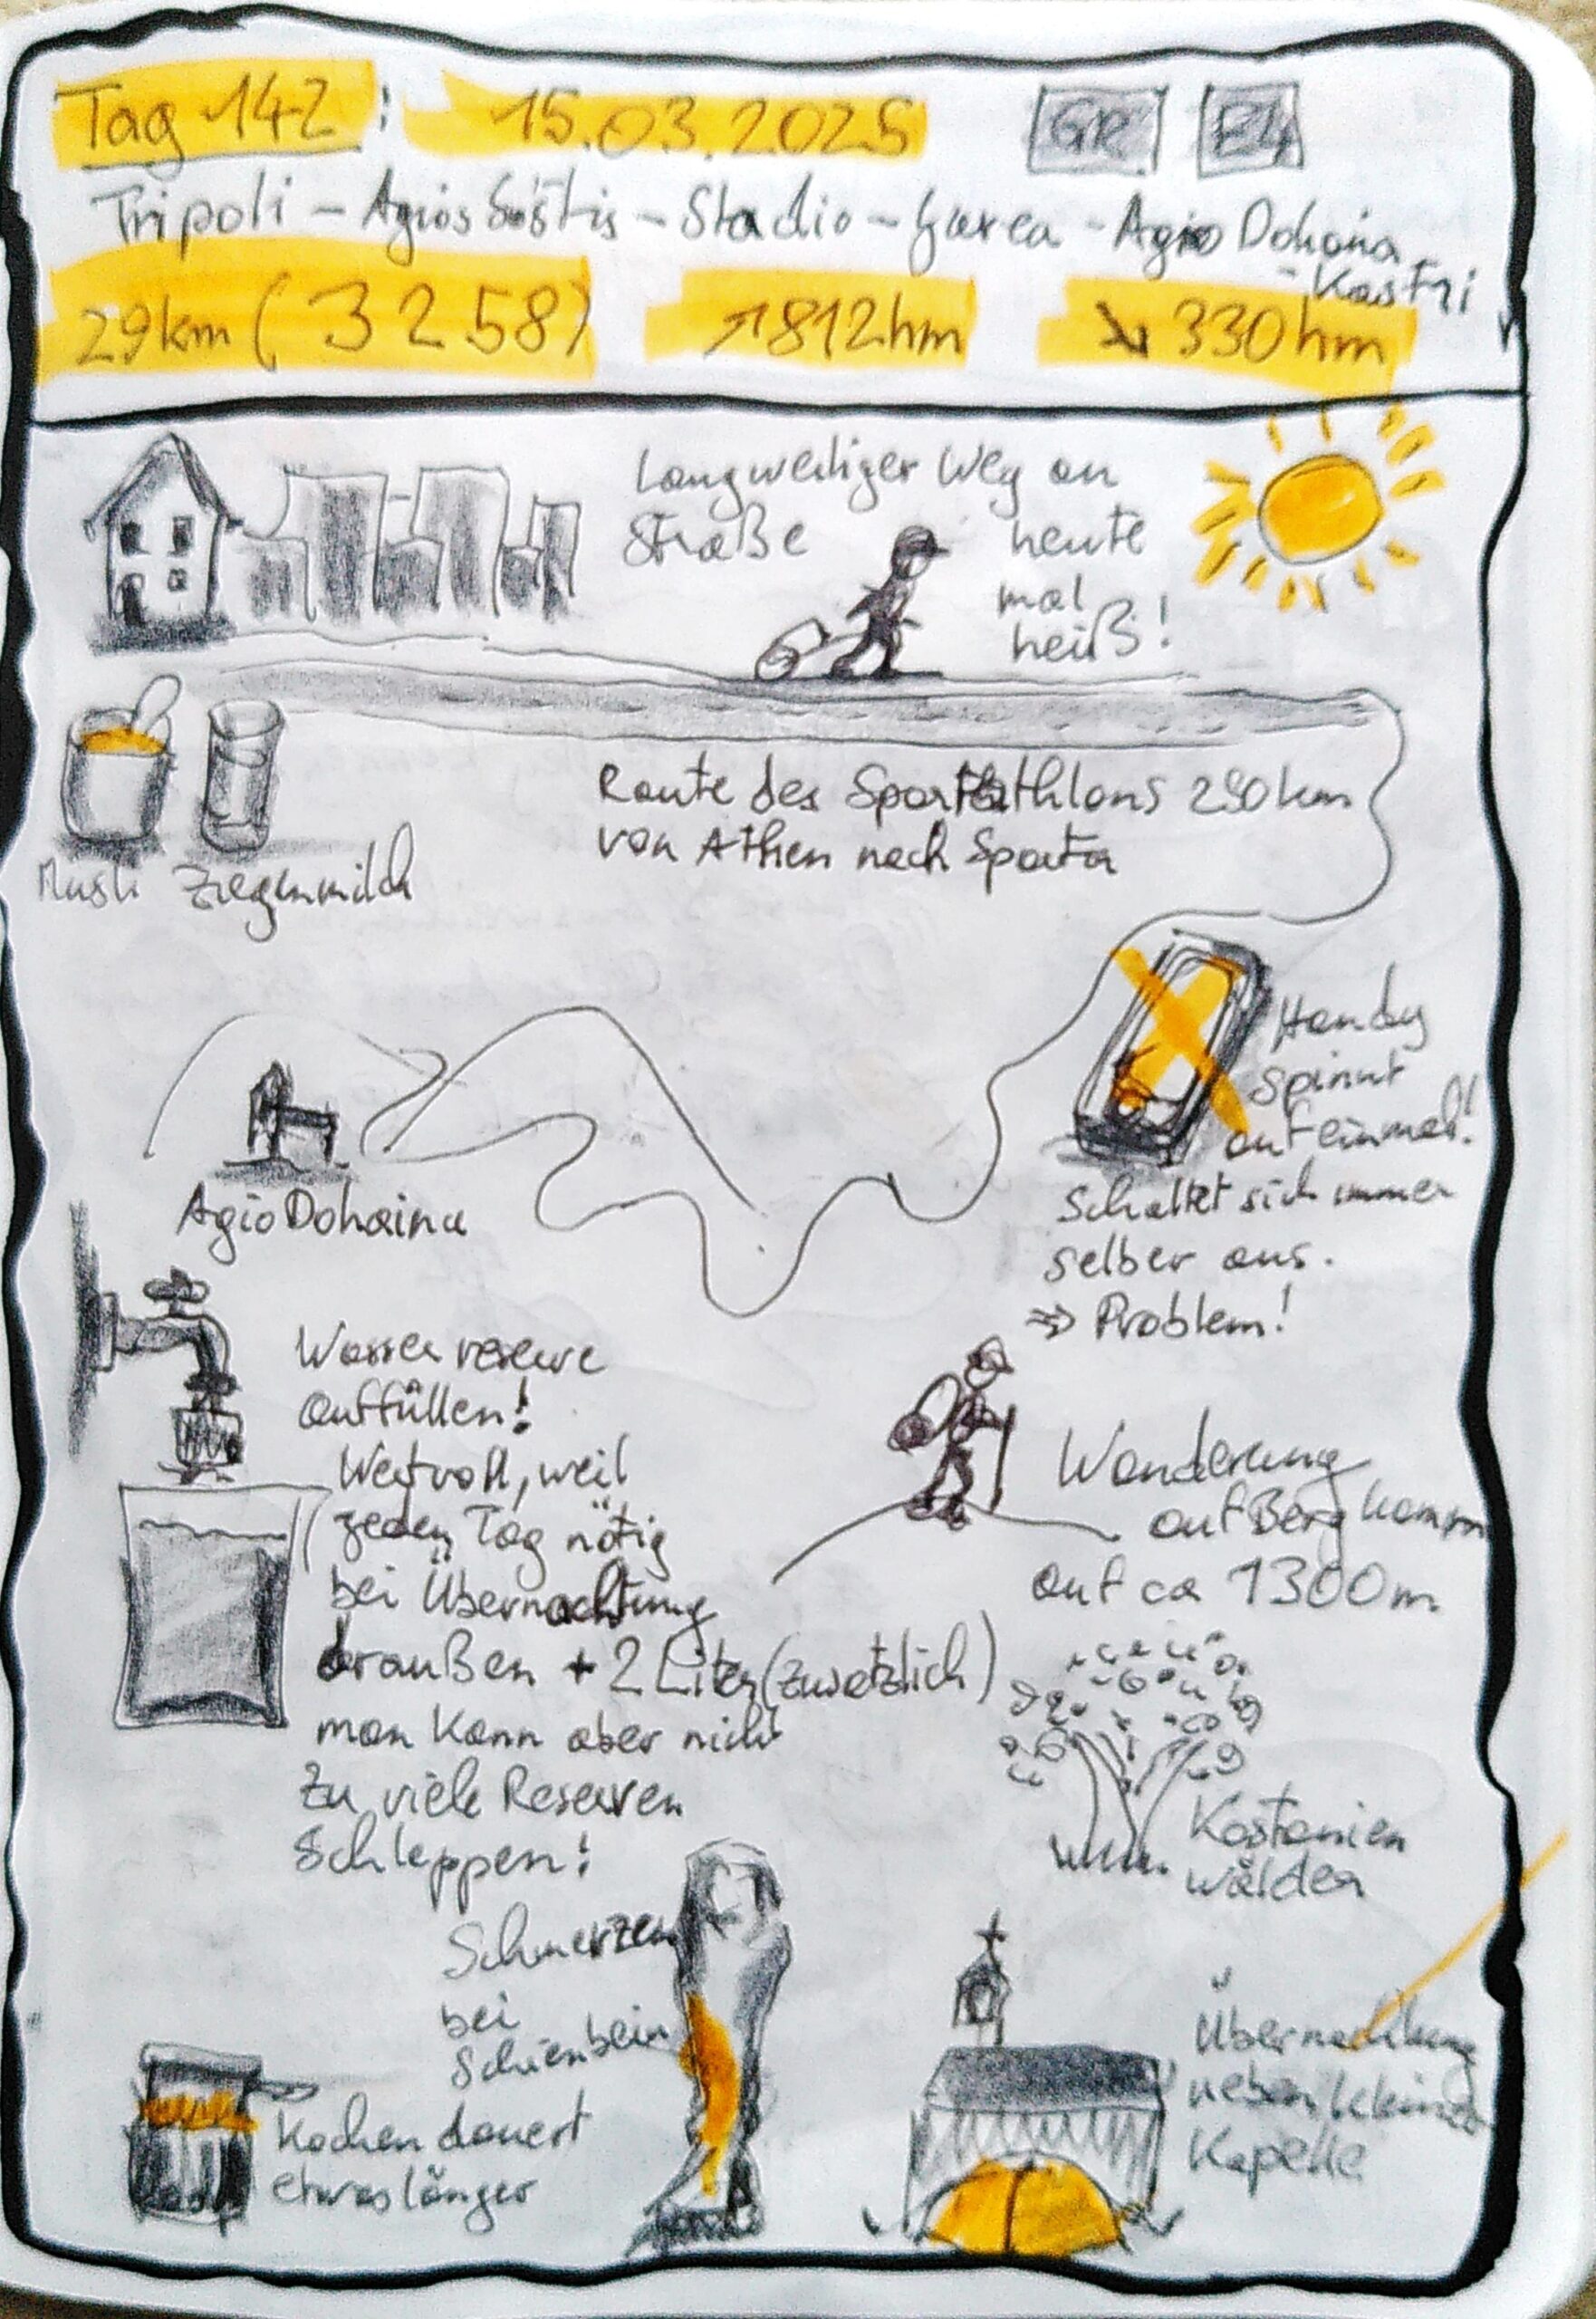 Tag 142: 15.03.2025 GR E4
Tripoli – Agios Sostis – Stadio – – Agio Dohaina
- Kastri
29km (3258) ↗812hm ↘330hm
Langweiliger Weg an
Straße
heute
mal
heiß!
Müsli Ziegenmilch
Route des 250km
von Athen nach Sparta
Handy
spinnt
auf einmal!
Schaltet sich immer
selber aus.
⇒ Problem!
Agio Dohaina
Wasserreserve
auffüllen!
Wertvoll, weil
jeden Tag nötig
bei Übernachtung
draußen + 2 Liter (zusätzlich)
man kann aber nicht
zu viele Reserven
schleppen!
Wanderung
auf Bergkamm
auf ca 1300m
Kastanien
wälder
Schmerzen
bei
Schienbein
Kochen dauert
etwas länger
Übernachtung
neben kleiner
Kapelle